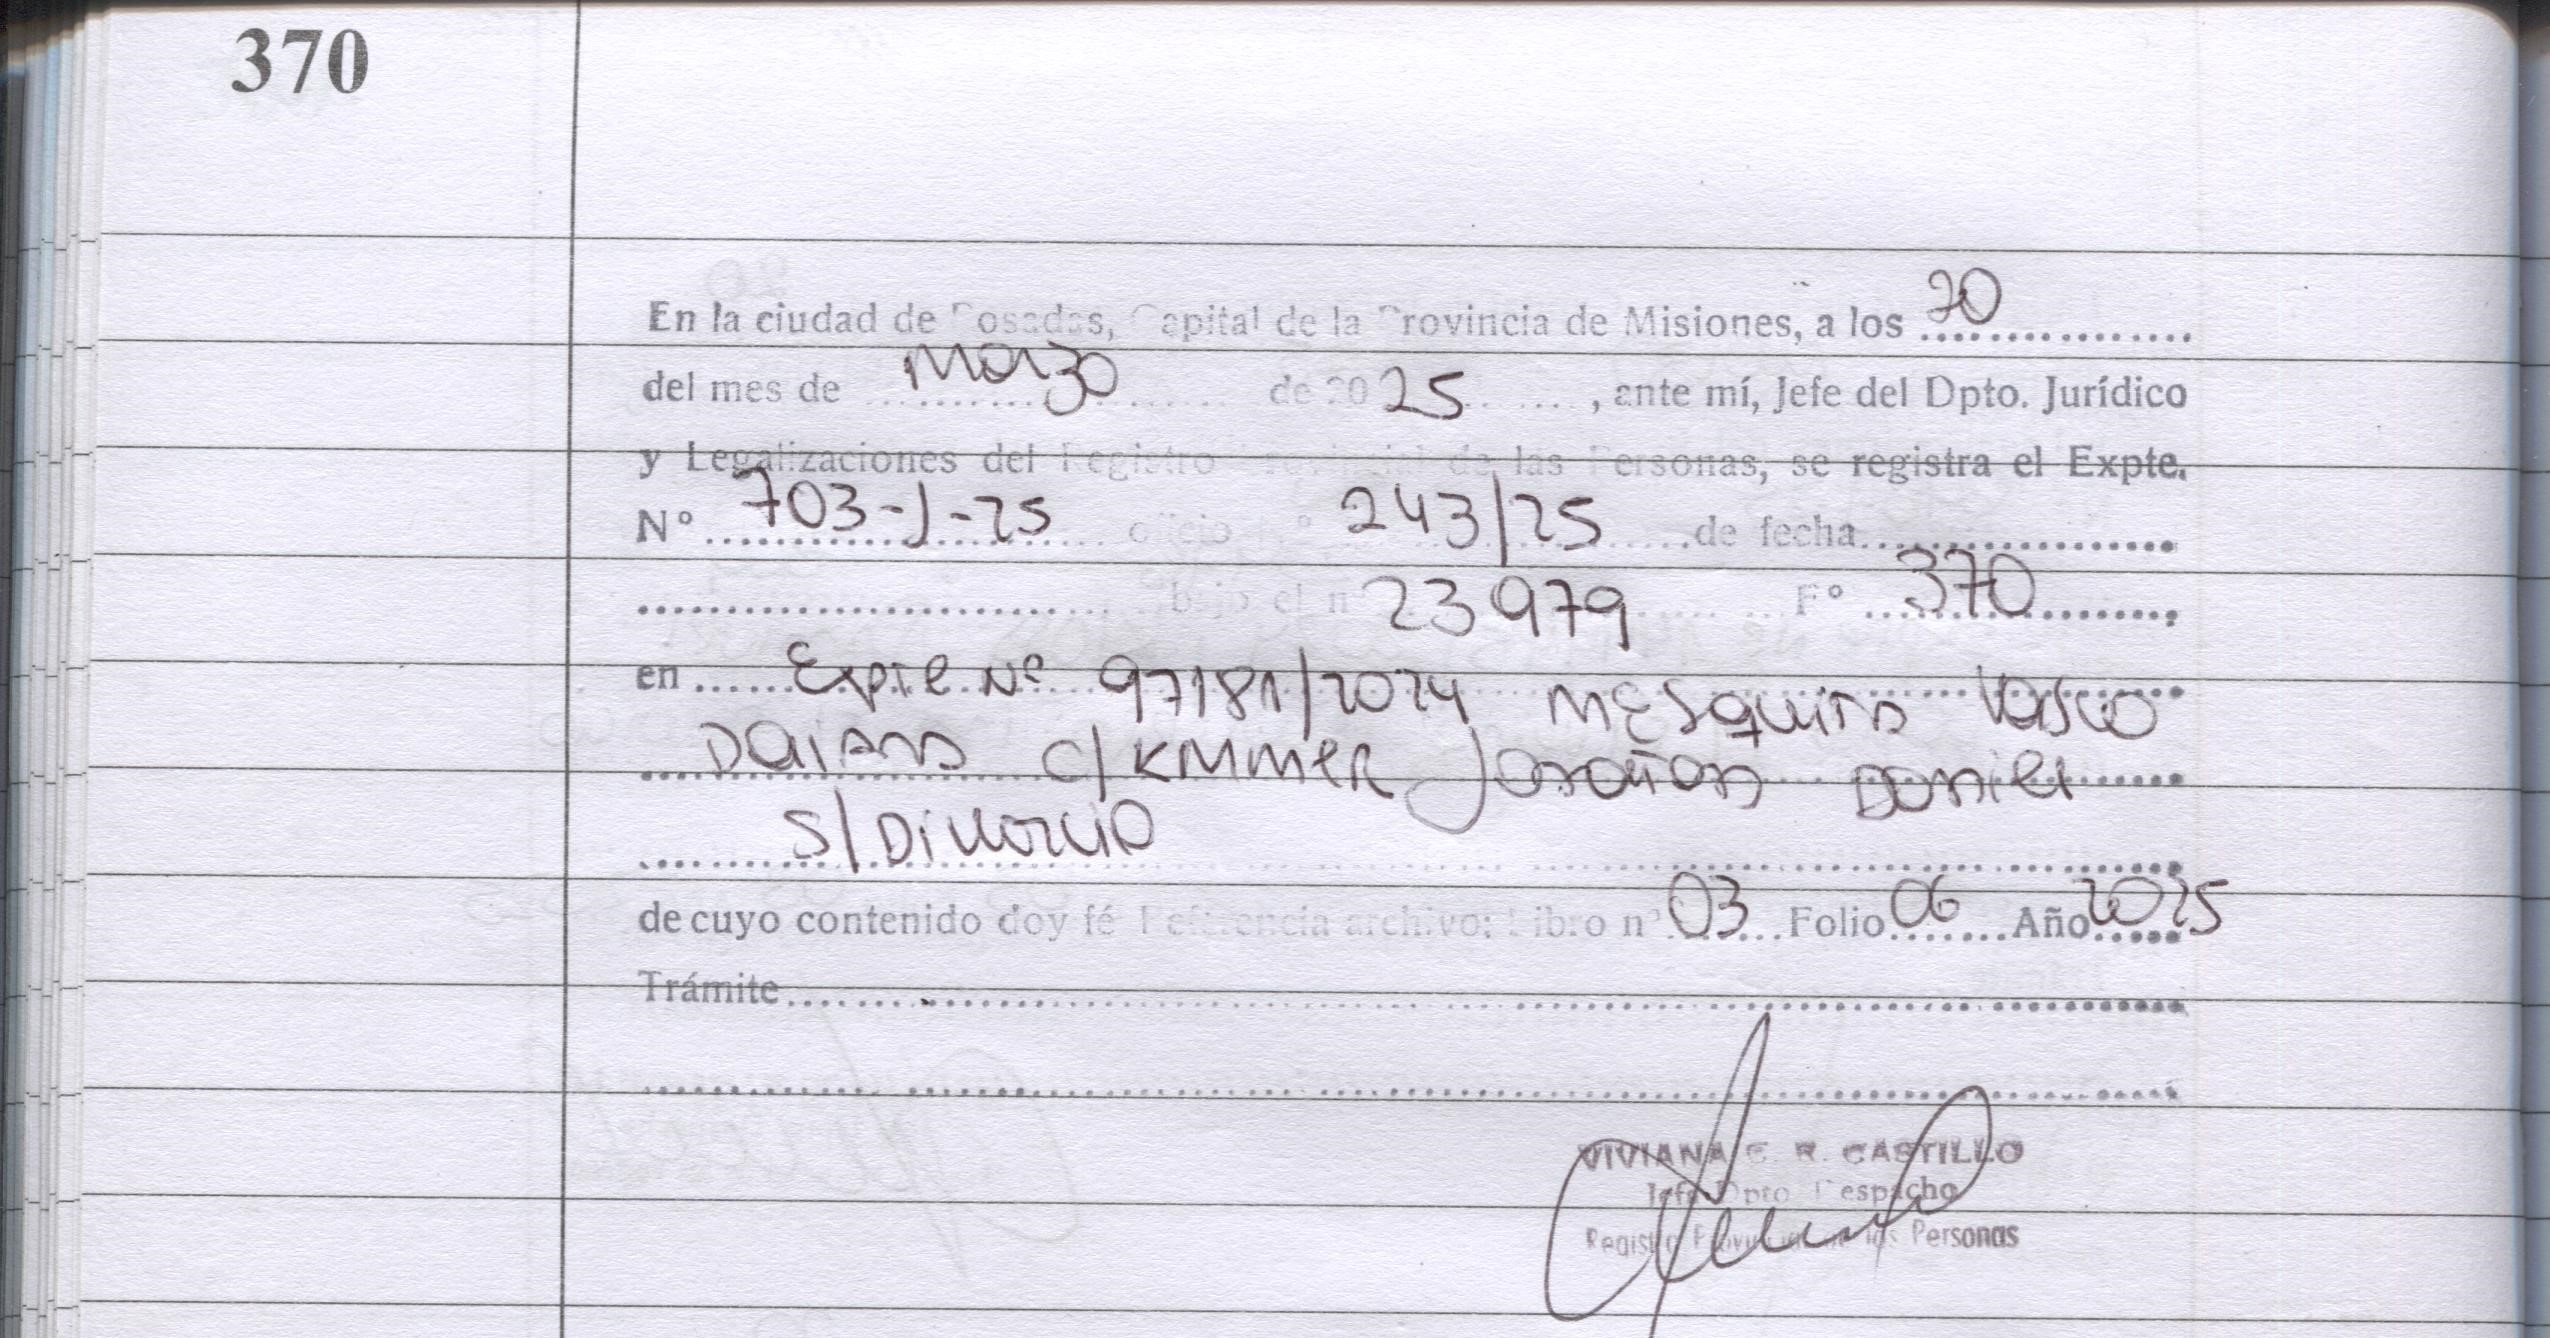 370
En la ciudad de Posadas, Capital de la Provincia de Misiones, a los 20
del mes de marzo de 2025, ante mí, Jefe del Dpto. Jurídico
y Legalizaciones del Registro Provincial de las Personas, se registra el Expte.
Nº 703-J-25 oficio nº 243/25 de fecha
bajo el nº 23979 Fº 370
en Expte Nº 97181/2024 MESQUITA VASCO
DAIANA c/ Daniel
S/ Divorcio
de cuyo contenido doy fé Referencia archivo: Libro nº 03 Folio 06 Año 2025
Trámite
VIVIANA E. R. CASTILLO
Jefe Dpto. Despacho
Registro Provincial de las Personas